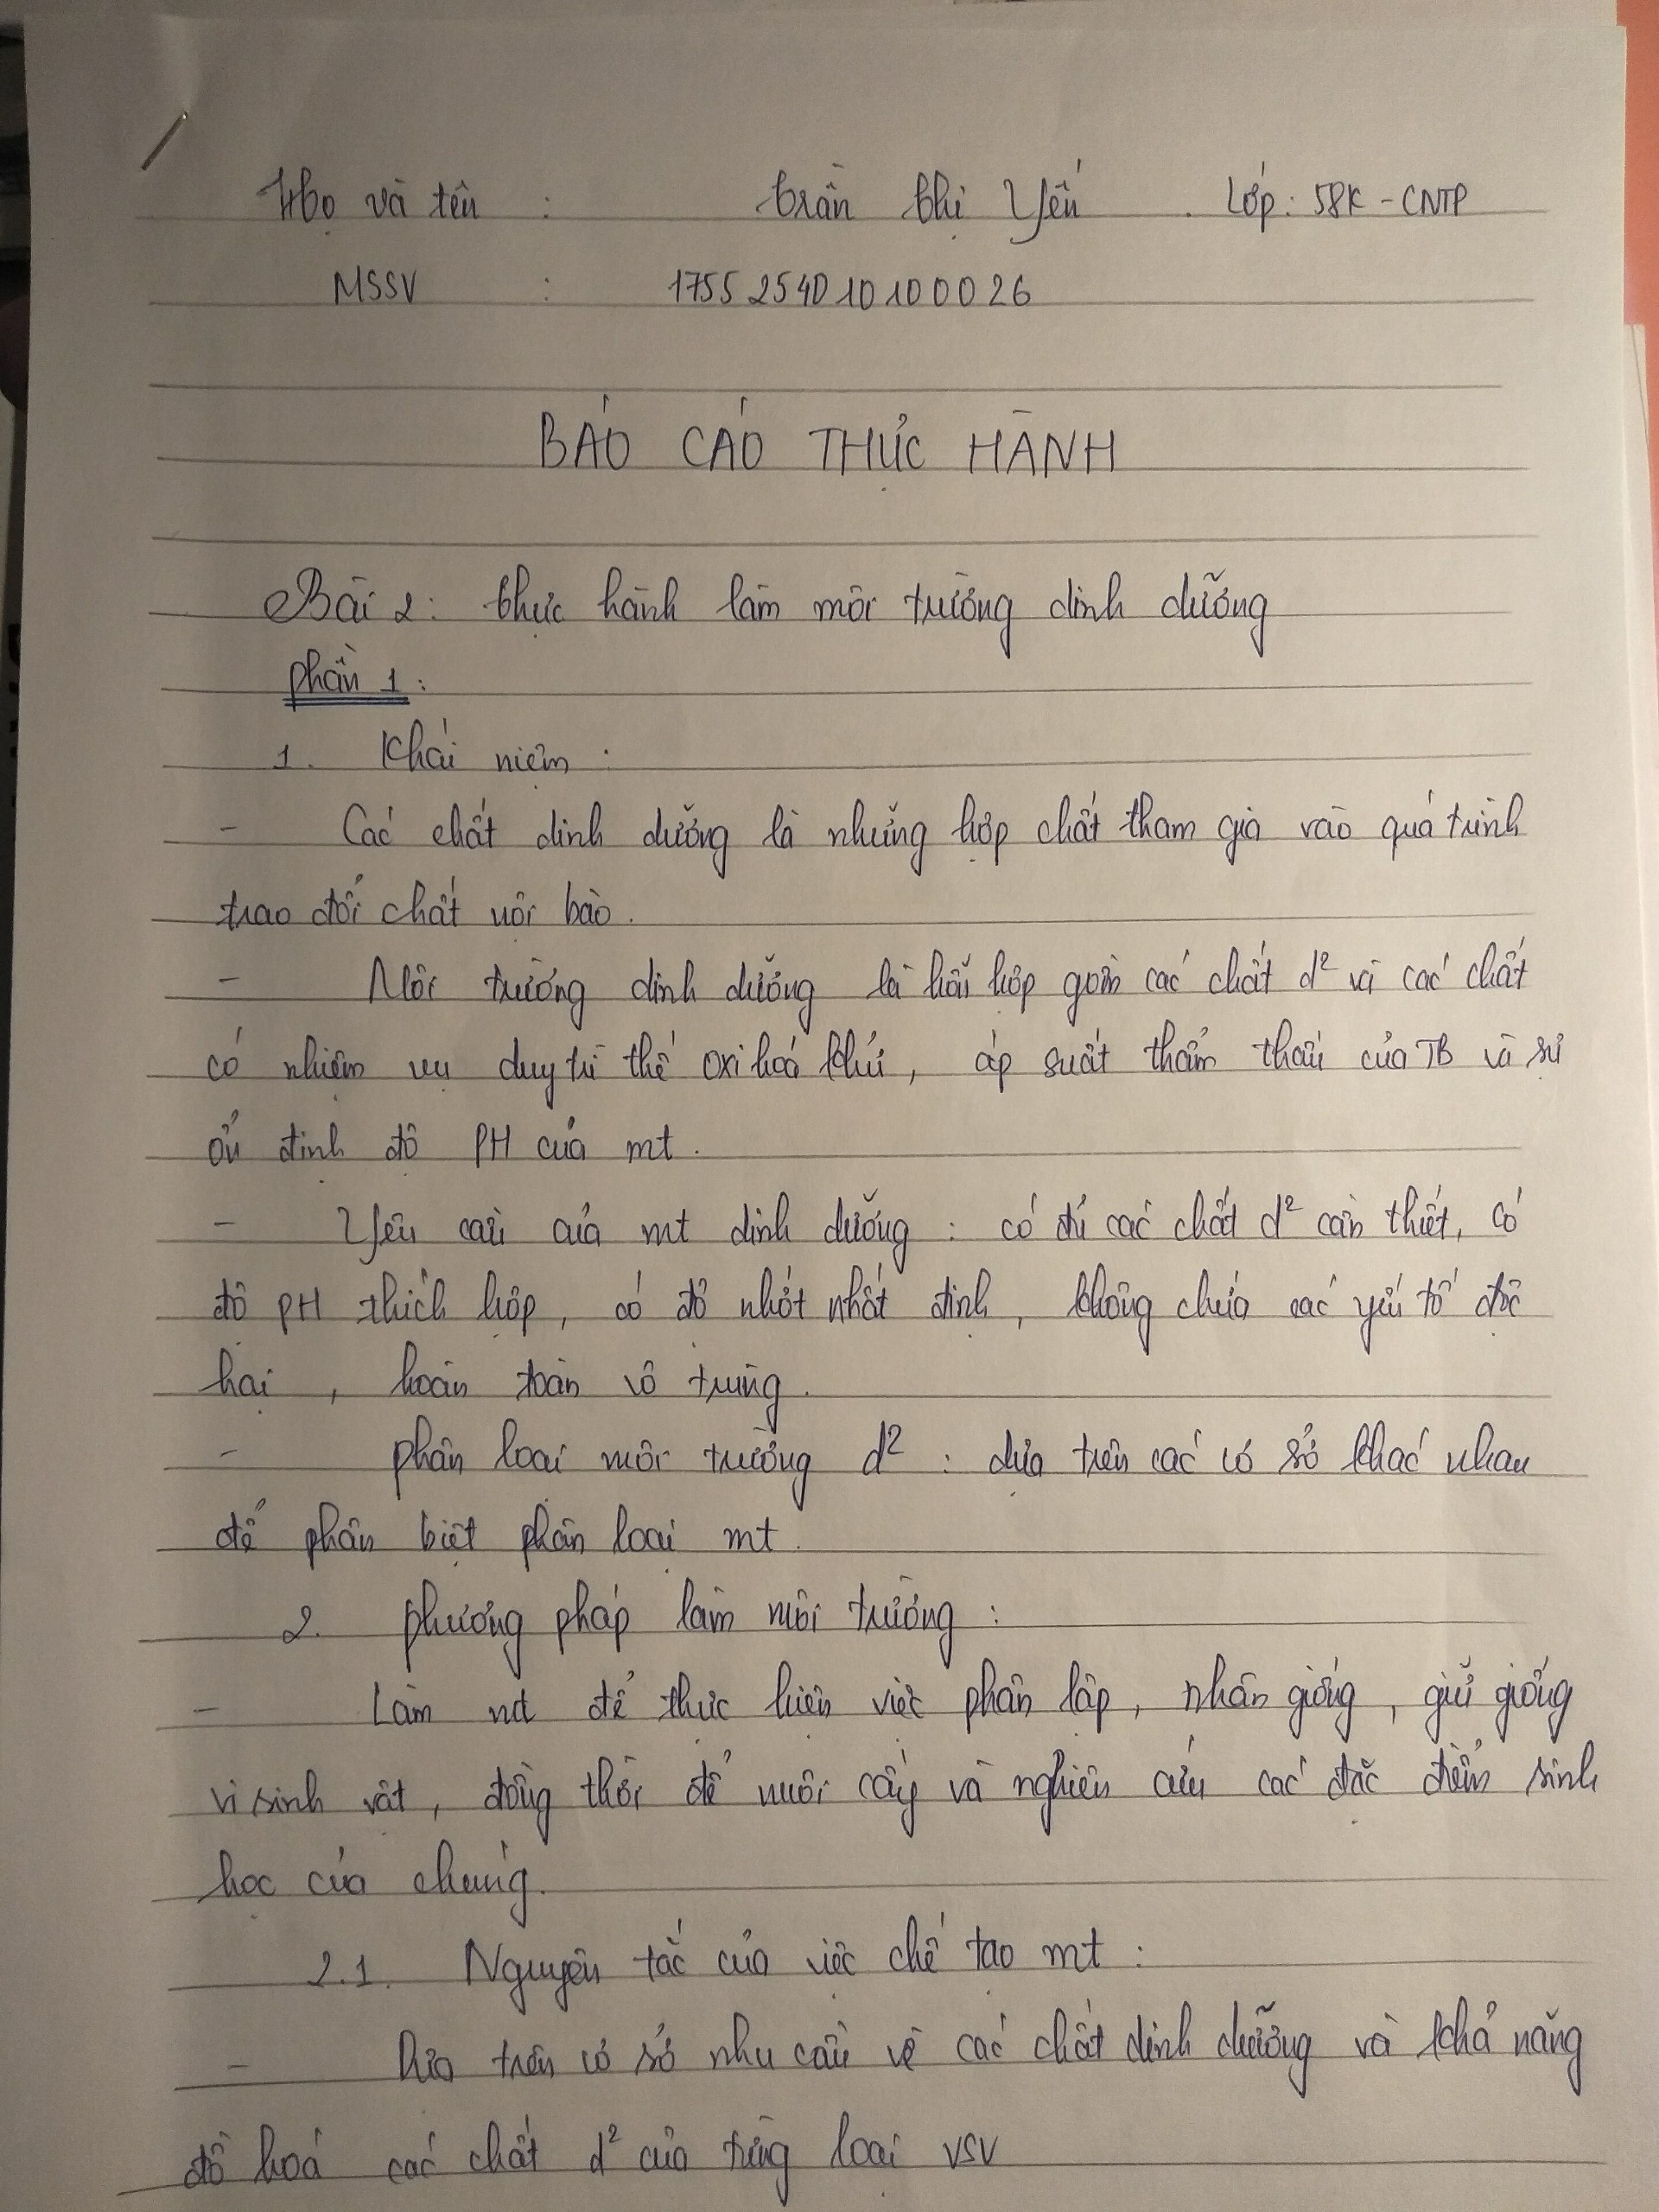 Họ và tên : Trần Thị Yến . Lớp: 58K - CNTP
MSSV : 1755254010100026
BÁO CÁO THỰC HÀNH
Bài 2: Thực hành làm môi trường dinh dưỡng
Phần 1:
1. Khái niệm :
- Các chất dinh dưỡng là những hợp chất tham gia vào quá trình
trao đổi chất nội bào.
- Môi trường dinh dưỡng là hỗn hợp gồm các chất d² và các chất
có nhiệm vụ duy trì thế oxi hoá khử, áp suất thẩm thấu của TB và sự
ổn định độ PH của mt.
- Yêu cầu của mt dinh dưỡng : có đủ các chất d² cần thiết, có
độ PH thích hợp, có độ nhớt nhất định, không chứa các yếu tố độc
hại, hoàn toàn vô trùng.
- Phân loại môi trường d² : dựa trên các cơ sở khác nhau
để phân biệt phân loại mt.
2. Phương pháp làm môi trường :
- Làm mt để thực hiện việc phân lập, nhân giống, giữ giống
vi sinh vật, đồng thời để nuôi cấy và nghiên cứu các đặc điểm sinh
học của chúng.
2.1. Nguyên tắc của việc chế tạo mt :
- Dựa trên cơ sở nhu cầu về các chất dinh dưỡng và khả năng
đồ hoá các chất d² của từng loại VSV